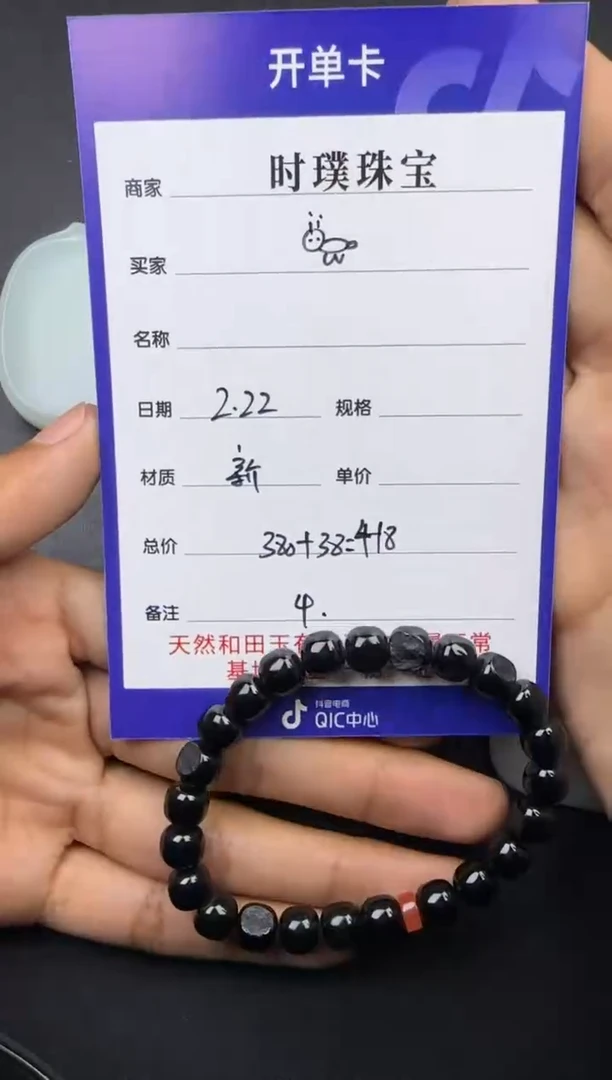 开单卡
商家 时璞珠宝
买家
名称
日期 2.22 规格
材质 新 单价
总价 380+38=418
备注 4.
天然和田玉有
常
基
抖音电商
QIC中心